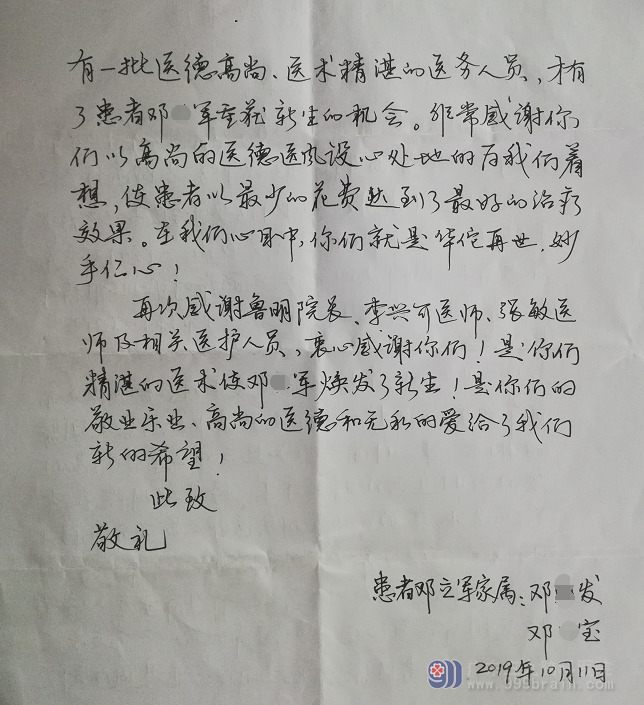 有一批医德高尚、医术精湛的医务人员,才有
了患者邓 军重获新生的机会。非常感谢你
们以高尚的医德医风设心处地的为我们着
想,使患者以最少的花费达到了最好的治疗
效果。在我们心目中,你们就是华佗再世,妙
手仁心!
再次感谢鲁明院长、李兴可医师、张敏医
师及相关医护人员,衷心感谢你们!是你们
精湛的医术使邓 军焕发了新生!是你们的
敬业乐业、高尚的医德和无私的爱给了我们
新的希望!
此致
敬礼
患者邓立军家属:邓 发
邓 宝
2019年10月11日
www.999brain.com